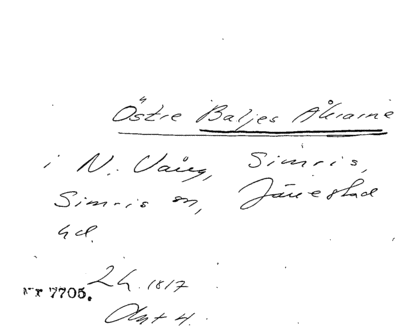 Östre Baljes Åkrarne
i N. Vång, Simris,
Simris sn, Järrestad
hd.
Nr 7705. Lh. 1817
Akt 4.